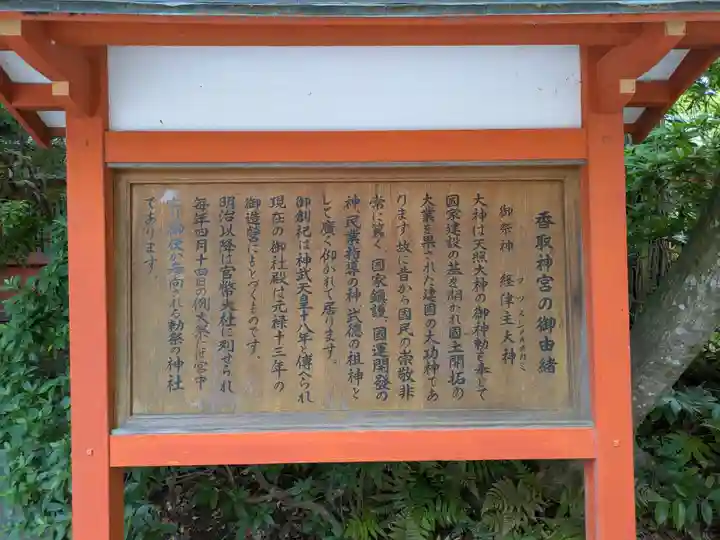 香取神宮の御由緒
フツヌシノオホカミ
御祭神 経津主大神
大神は天照大神の御神勅を奉じて
國家建設の基を開かれ國土開拓の
大業を果された建國の大功神であ
ります故に昔から國民の崇敬非
常に篤く國家鎮護、國運開發の
神、民業指導の神、武徳の祖神と
して廣く仰がれて居ります。
御創祀は神武天皇十八年と傳へられ
現在の御社殿は元禄十三年の
御造営にもとづくものです。
明治以降は官幣大社に列せられ
毎年四月十四日の例大祭には宮中
より御使が参向される勅祭の神社
であります。